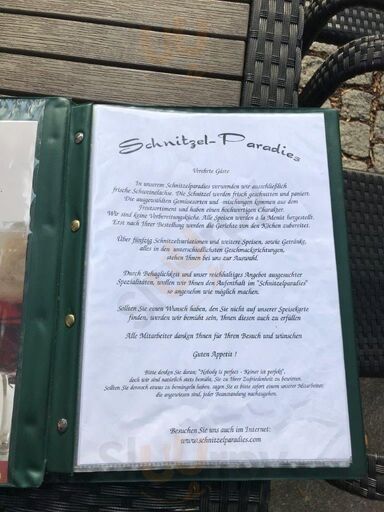 Schnitzel-Paradies
Verehrte Gäste
In unserem Schnitzelparadies verwenden wir ausschließlich
frische Schweinelachse. Die Schnitzel werden frisch geschnitten und paniert.
Die ausgewählten Gemüsesorten und -mischungen kommen aus dem
Frostsortiment und haben einen hochwertigen Charakter.
Wir sind keine Vorbereitungsküche. Alle Speisen werden à la Menüt hergestellt.
Erst nach Ihrer Bestellung werden die Gerichte von den Köchen zubereitet.
Über fünfzig Schnitzelvariationen und weitere Speisen, sowie Getränke,
alles in den unterschiedlichsten Geschmacksrichtungen,
stehen Ihnen bei uns zur Auswahl.
Durch Behaglichkeit und unser reichhaltiges Angebot ausgesuchter
Spezialitäten, wollen wir Ihnen den Aufenthalt im "Schnitzelparadies"
so angenehm wie möglich machen.
Sollten Sie einen Wunsch haben, den Sie nicht auf unserer Speisekarte
finden, werden wir bemüht sein, Ihnen diesen auch zu erfüllen
Alle Mitarbeiter danken Ihnen für Ihren Besuch und wünschen
Guten Appetit !
Bitte denken Sie daran; "Nobody is perfect - Keiner ist perfekt",
doch wir sind natürlich stets bemüht, Sie zu Ihrer Zufriedenheit zu bewirten.
Sollten Sie dennoch etwas zu bemängeln haben, sagen Sie es bitte sofort einem unserer Mitarbeiter,
die angewiesen sind, jeder Beanstandung nachzugehen.
Besuchen Sie uns auch im Internet:
www.schnitzelparadies.com